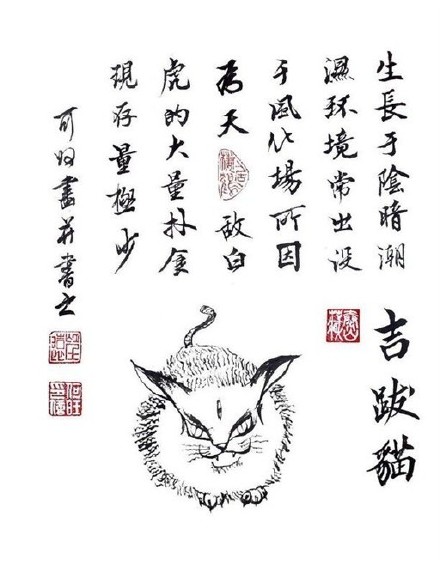 吉跋貓
生長于陰暗潮
濕环境常出没
于風化場所因
为天敌白
虎的大量扑食
現存量極少
可畫并書之